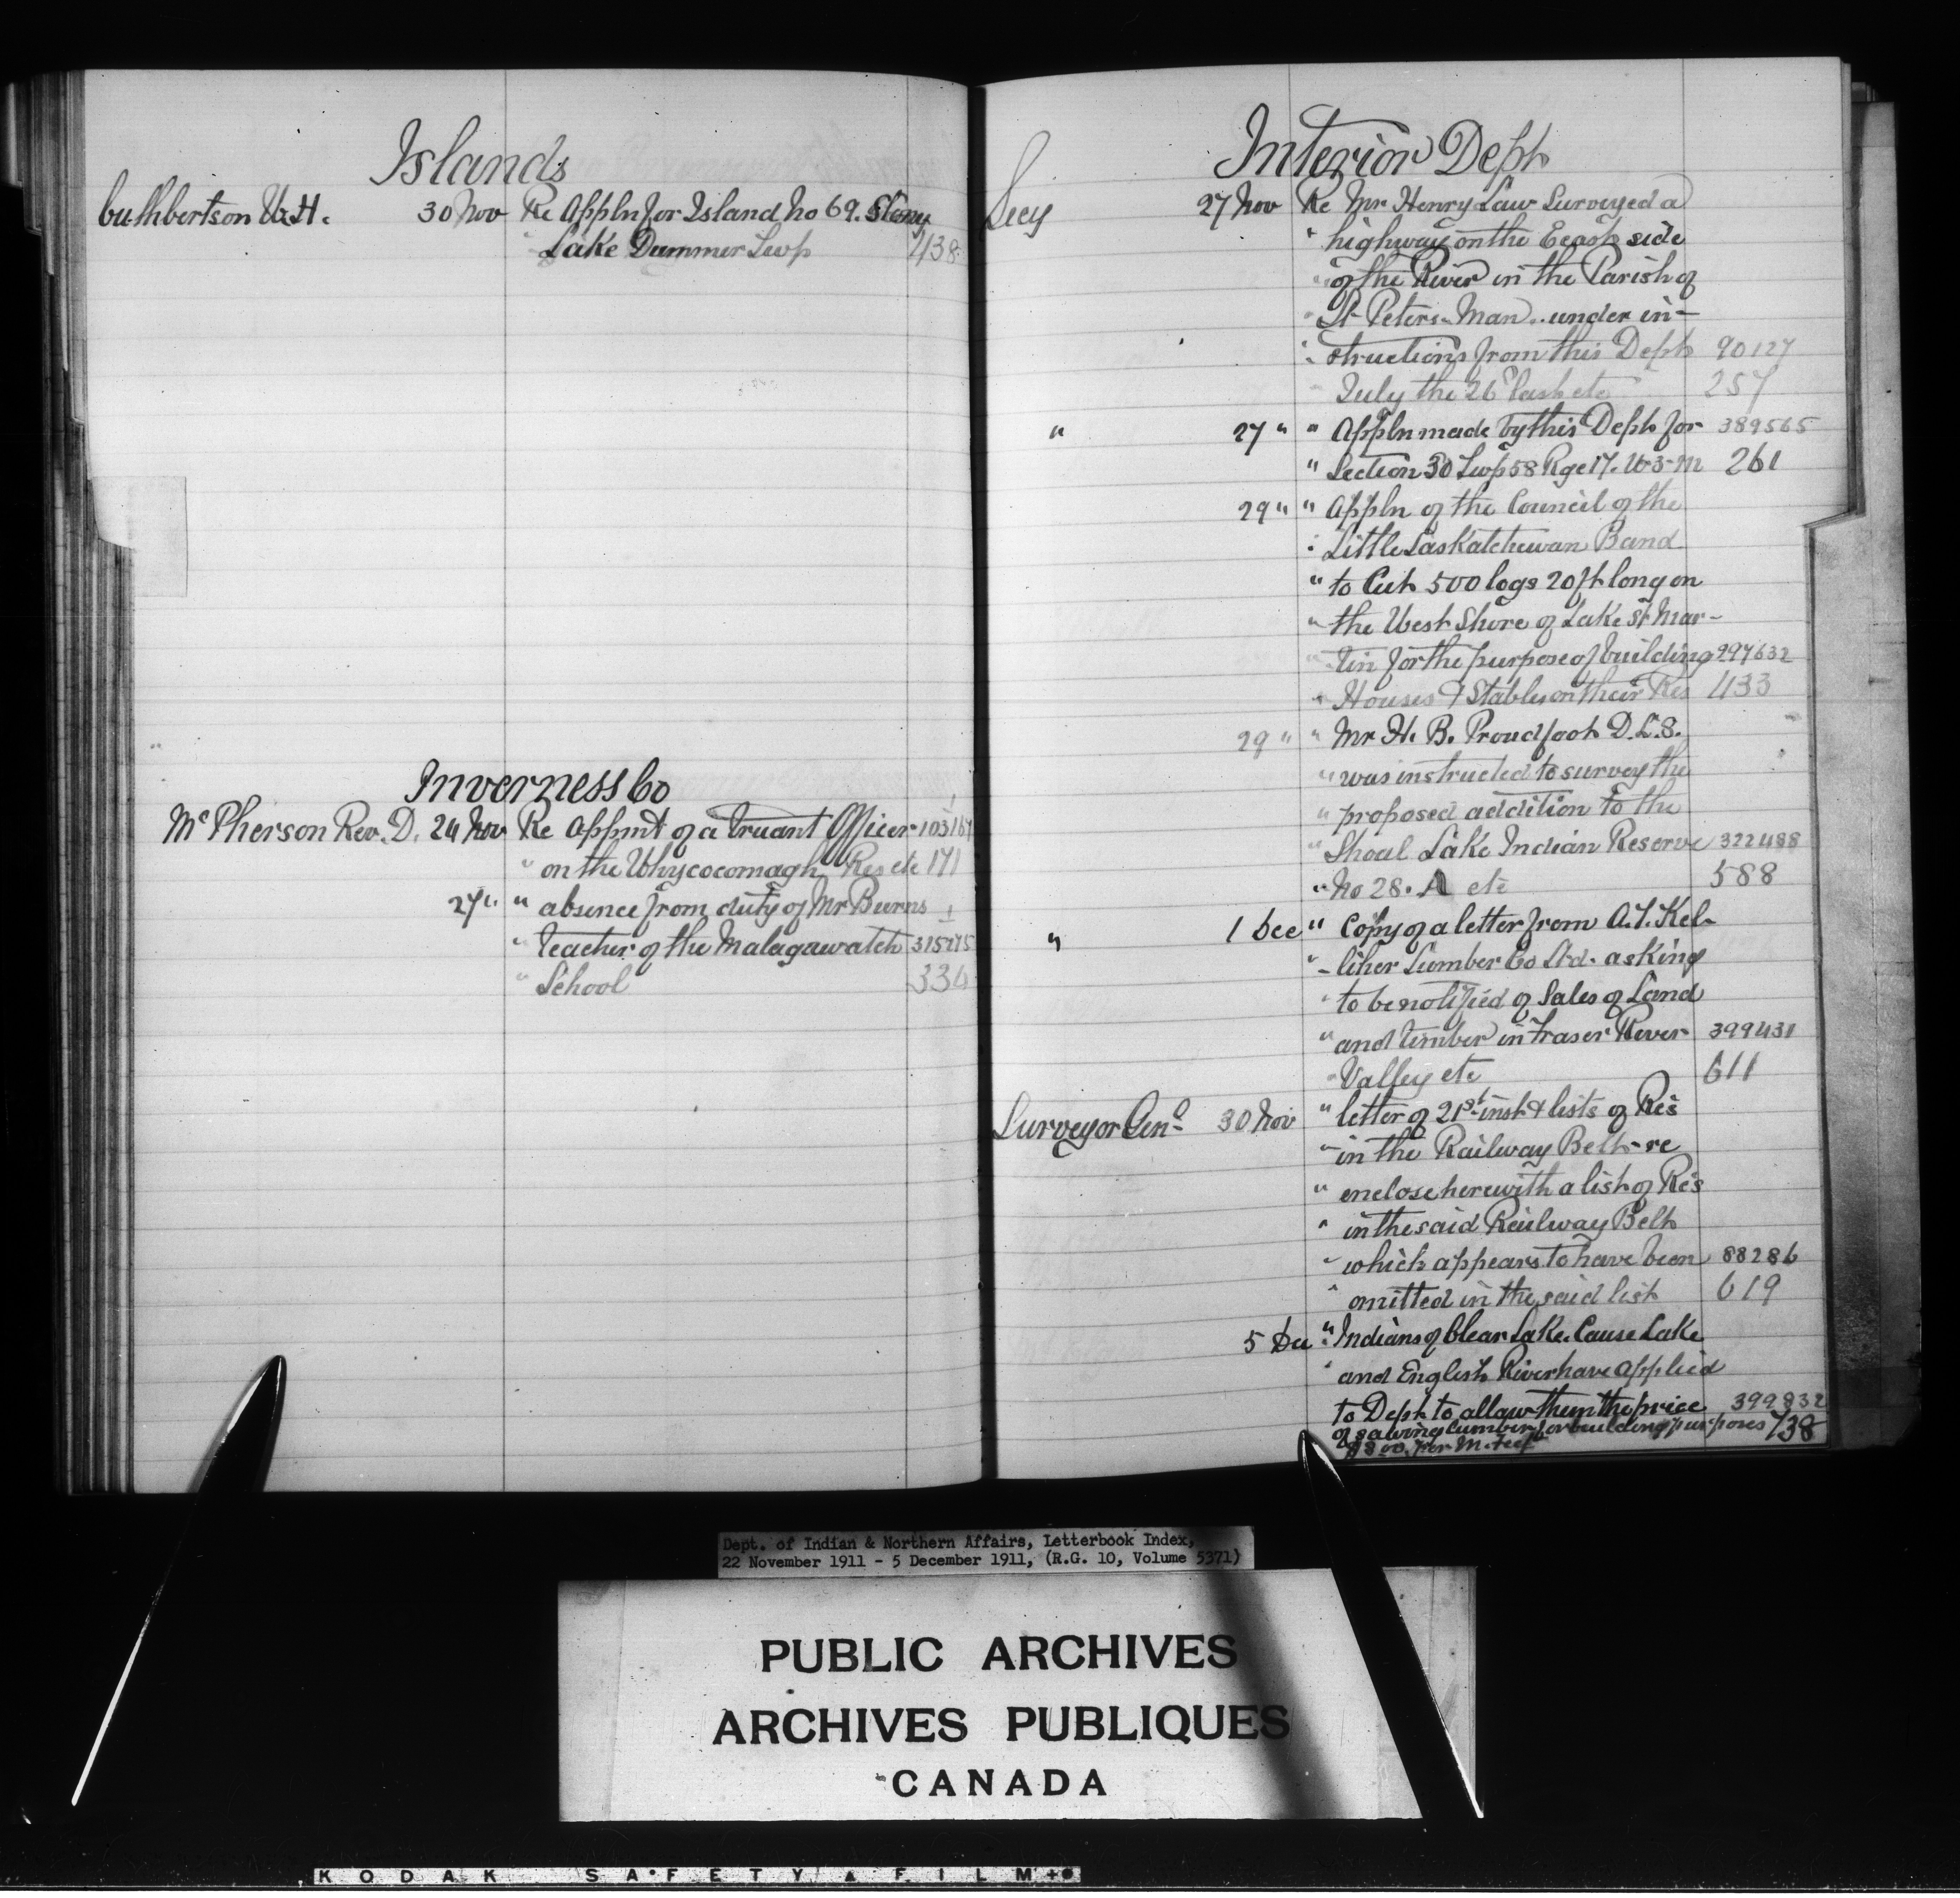 Islands
Cuthbertson W.H. 30 Nov Re Appln for Island No 69. Stony
" Lake Dummer Twp 438
Inverness Co
McPherson Rev. D. 24 Nov Re Appmt of a Truant Officer
" on the Whycocomagh Res etc 171
27 " " absence from duty of Mr Burns
" teacher of the Malagawatch 315275
" School 334
Interior Dept
Secy 27 Nov Re Mr Henry Law Surveyed a
" highway on the East side
" of the River in the Parish of
" St Peters. Man.. under in-
" structions from this Dept 90127
" July the 26 last etc 257
" 27 " " Appln made by this Dept for 389565
" Section 30 Twp 58 Rge 17. W-3-M 261
29 " " Appln of the Council of the
" Little Saskatchewan Band
" to Cut 500 logs 20 ft long on
" the West Shore of Lake St Mar-
" tin for the purpose of building 297632
" Houses & Stables on their Res 433
29 " " Mr H. B. Proudfoot D.L.S.
" was instructed to survey the
" proposed addition to the
" Shoal Lake Indian Reserve 322488
" No 28. A etc 588
" 1 Dec " Copy of a letter from A.T. Kel-
" - liher Lumber Co Ltd. asking
" to be notified of Sales of Land
" and timber in Fraser River 399431
" Valley etc 611
Surveyor Genl 30 Nov " letter of 21st inst & lists of Res
" in the Railway Belt - re
" enclose herewith a list of Res
" in the said Railway Belt
" which appears to have been 88286
" omitted in the said list 619
5 Dec " Indians of Clear Lake. Cause Lake
" and English River have applied
to Dept to allow them the price 399832
of sawing lumber for building purposes 738
$8.00 per M. Feet
Dept. of Indian & Northern Affairs, Letterbook Index,
22 November 1911 - 5 December 1911, (R.G. 10, Volume 5371)
PUBLIC ARCHIVES
ARCHIVES PUBLIQUES
CANADA
KODAK SAFETY FILM